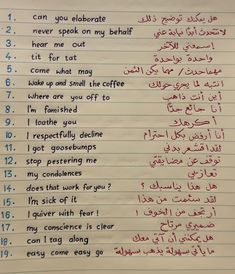 1. can you elaborate هل يمكنك توضيح ذلك
2. never speak on my behalf لا تتحدث أبدا نيابة عني
3. hear me out إسمعني للآخر
4. tit for tat واحدة بواحدة
5. come what may مهما حدث / مهما يكن الثمن
6. wake up and smell the coffee انتبه لما يجري حولك
7. where are you off to أين أنت ذاهب
8. I'm famished أنا جائع جدًا
9. I loathe you أكرهك
10. I respectfully decline أنا أرفض بكل احترام
11. I got goosebumps لقد اقشعر بدني
12. stop pestering me توقف عن مضايقتي
13. my condolences تعازيي
14. does that work for you? هل هذا يناسبك ؟
15. I'm sick of it لقد سئمت من هذا
16. I quiver with fear! أرتجف من الخوف !
17. my conscience is clear ضميري مرتاح
18. can I tag along هل يمكنني أن آتي معك
19. easy come easy go ما يأتي بسهولة يذهب بسهولة